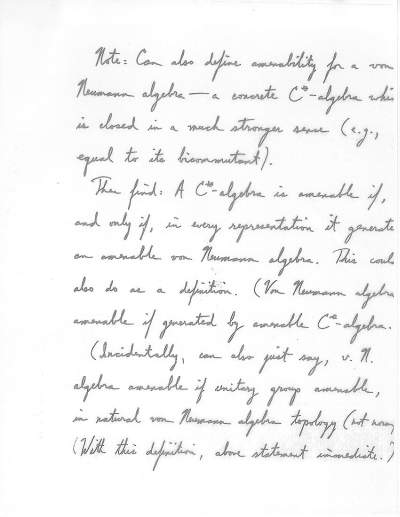 Note: Can also define amenability for a von
Neumann algebra — a concrete C*-algebra
is closed in a much stronger sense (e.g.,
equal to its bicommutant).
Then find: A C*-algebra is amenable if,
and only if, in every representation it generate
an amenable von Neumann algebra. This coul
also do as a definition. (Von Neumann algebra
amenable if generated by amenable C*-algebra.
(Incidentally, can also just say, v. N.
algebra amenable if unitary group amenable,
in natural von Neumann algebra topology (not norm
(With this definition, above statement immediate.)